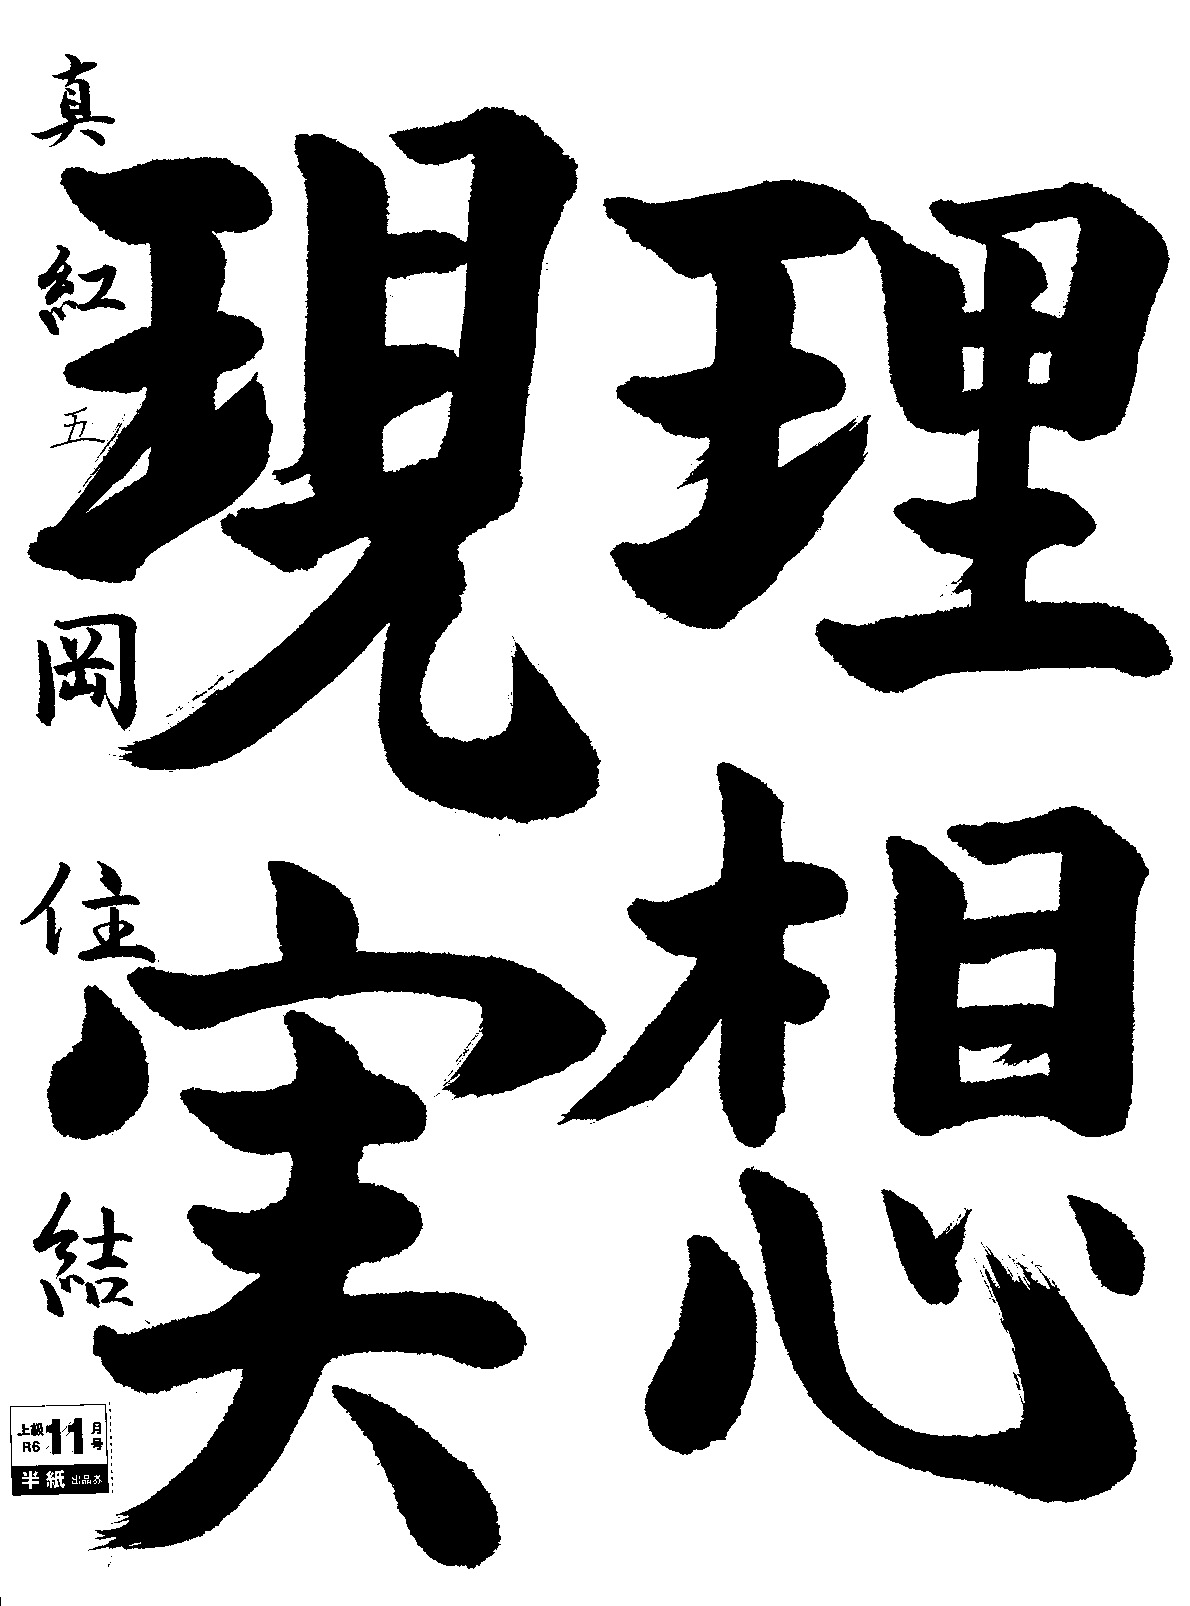 理想
現実
真紅 五 岡 住 結
上級 11 月号
R6
半紙 出品券